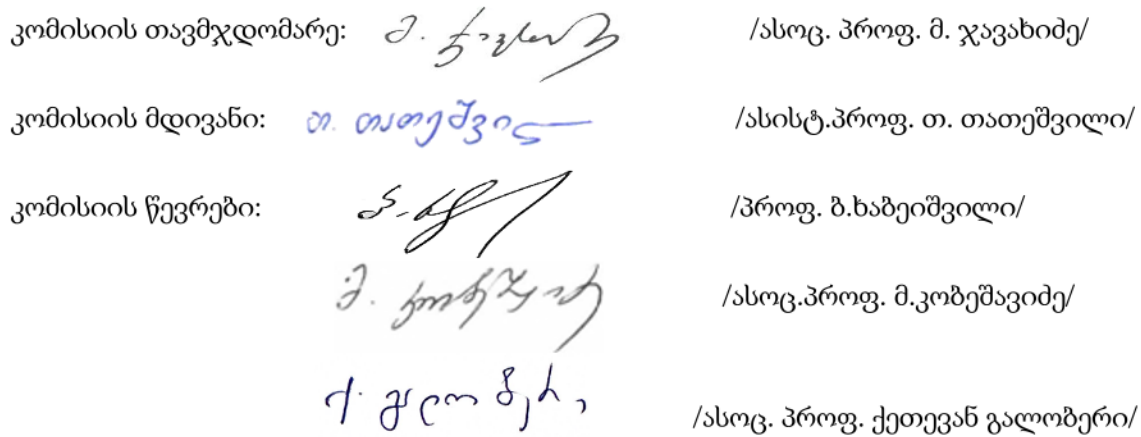 კომისიის თავმჯდომარე: მ. ჯავახიძე /ასოც. პროფ. მ. ჯავახიძე/
კომისიის მდივანი: თ. თათეშვილი /ასისტ.პროფ. თ. თათეშვილი/
კომისიის წევრები: /პროფ. ბ.ხაბეიშვილი/
/ასოც.პროფ. მ.კობეშავიძე/
ქ. გალობერი /ასოც. პროფ. ქეთევან გალობერი/